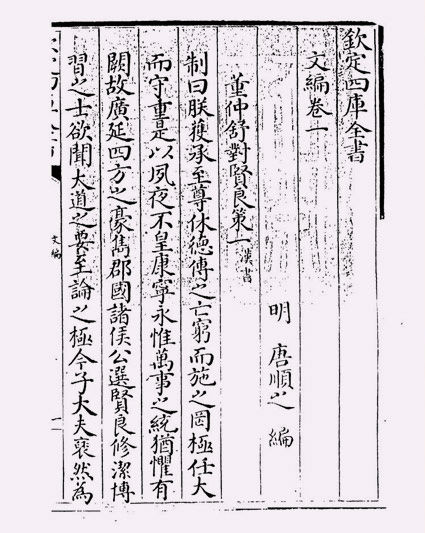 欽定四庫全書
文編卷一
明 唐順之 編
董仲舒對賢良策一漢書
制曰朕獲承至尊休德傳之亡窮而施之罔極任大
而守重是以夙夜不皇康寧永惟萬事之統猶懼有
闕故廣延四方之豪雋郡國諸侯公選賢良修潔博
習之士欲聞大道之要至論之極今子大夫裒然為
文編